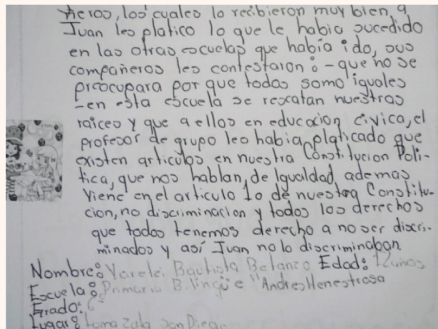 ñeros, los cuales lo recibieron muy bien, a
Juan les platico lo que le habia sucedido
en las otras escuelas que había ido, sus
compañeros les contestaron: - que no se
preocupara por que todos somo iguales
- en esta escuela se rescatan nuestras
raices y que a ellos en educacion civica, el
profesor de grupo les habia platicado que
existen articulos en nuestra Constitucion Poli-
tica, que nos hablan, de Igualdad ademas
viene en el articulo 1o de nuestra Constitu-
cion, no discriminacion y todos los derechos
que todos tenemos derecho a no ser discri-
minados y así Juan no lo discriminaban
Nombre: Yarelei Bautista Edad: 12 años
Escuela: Primaria Bilingüe "Andres Henestrosa
Grado: 6
Lugar: Loma San Diego